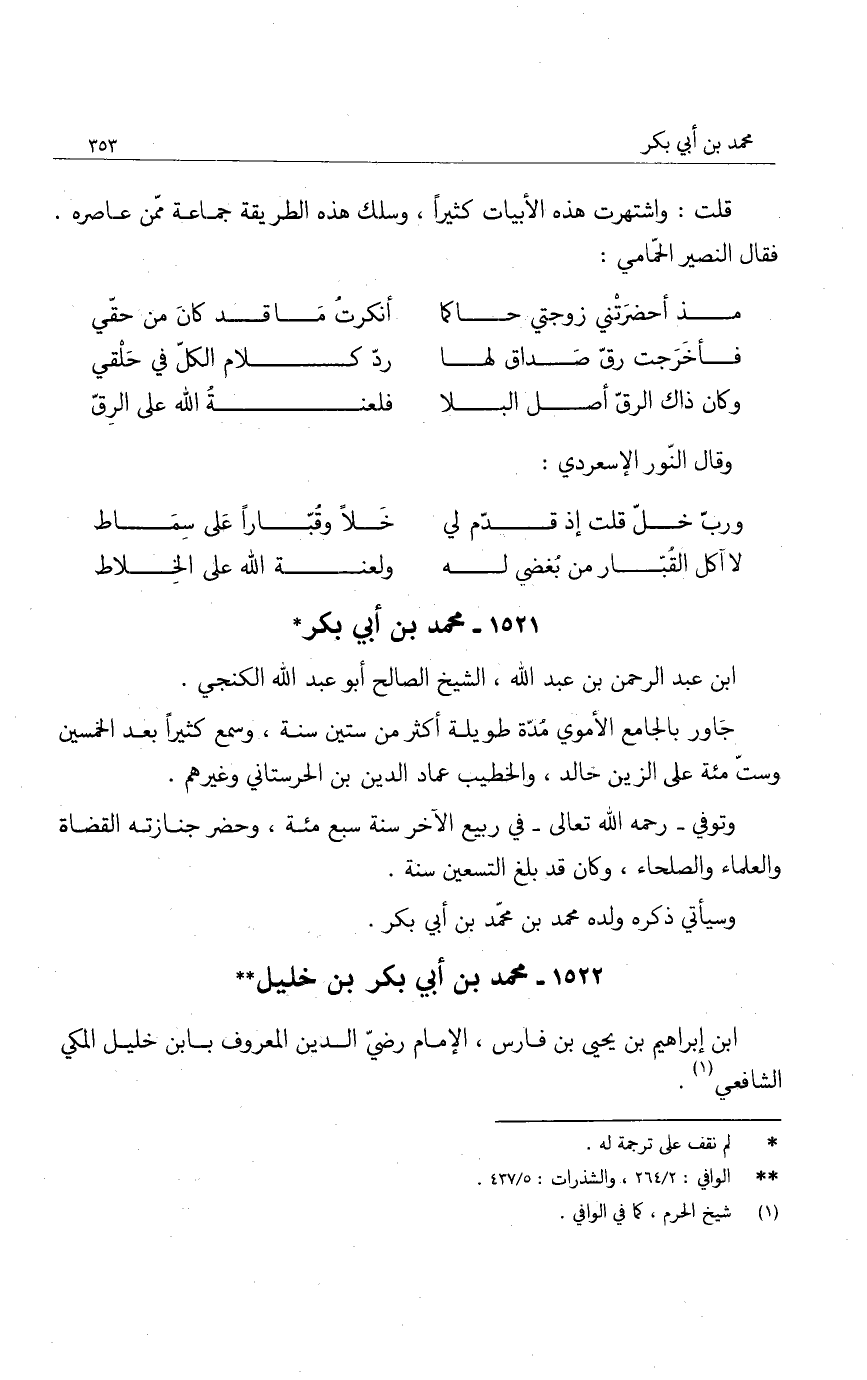 محمد بن أبي بكر ٣٥٣
قلت : واشتهرت هذه الأبيات كثيراً ، وسلك هذه الطريقة جماعة ممّن عاصره .
فقال النصير الحمّامي :
مذ أحضرَتْني زوجتي حاكما أنكرتُ مَا قد كانَ من حقّي
فأخَرَجت رقّ صَداق لها ردّ كلام الكلّ في حَلْقي
وكان ذاك الرقّ أصل البلا فلعنةُ الله على الرِقّ
وقال النّور الإسعردي :
وربّ خلّ قلت إذ قدّم لي خَلاً وقُبّاراً عَلى سِمَاط
لا آكل القُبّار من بُغضي له ولعنة الله على الخِلاط
١٥٢١ ـ محمد بن أبي بكر*
ابن عبد الرحمن بن عبد الله ، الشيخ الصالح أبو عبد الله الكنجي .
جَاور بالجامع الأموي مُدّة طويلة أكثر من ستين سنة ، وسمع كثيراً بعد الخمسين
وستّ مئة على الزين خالد ، والخطيب عماد الدين بن الحرستاني وغيرهم .
وتوفي ـ رحمه الله تعالى ـ في ربيع الآخر سنة سبع مئة ، وحضر جنازته القضاة
والعلماء والصلحاء ، وكان قد بلغ التسعين سنة .
وسيأتي ذكره ولده محمد بن محمّد بن أبي بكر .
١٥٢٢ ـ محمد بن أبي بكر بن خليل**
ابن إبراهيم بن يحيى بن فارس ، الإمام رضيّ الدين المعروف بابن خليل المكي
الشافعي(١) .
* لم نقف على ترجمة له .
** الوافي : ٢٦٤/٢ ، والشذرات : ٤٣٧/٥ .
(١) شيخ الحرم ، كما في الوافي .